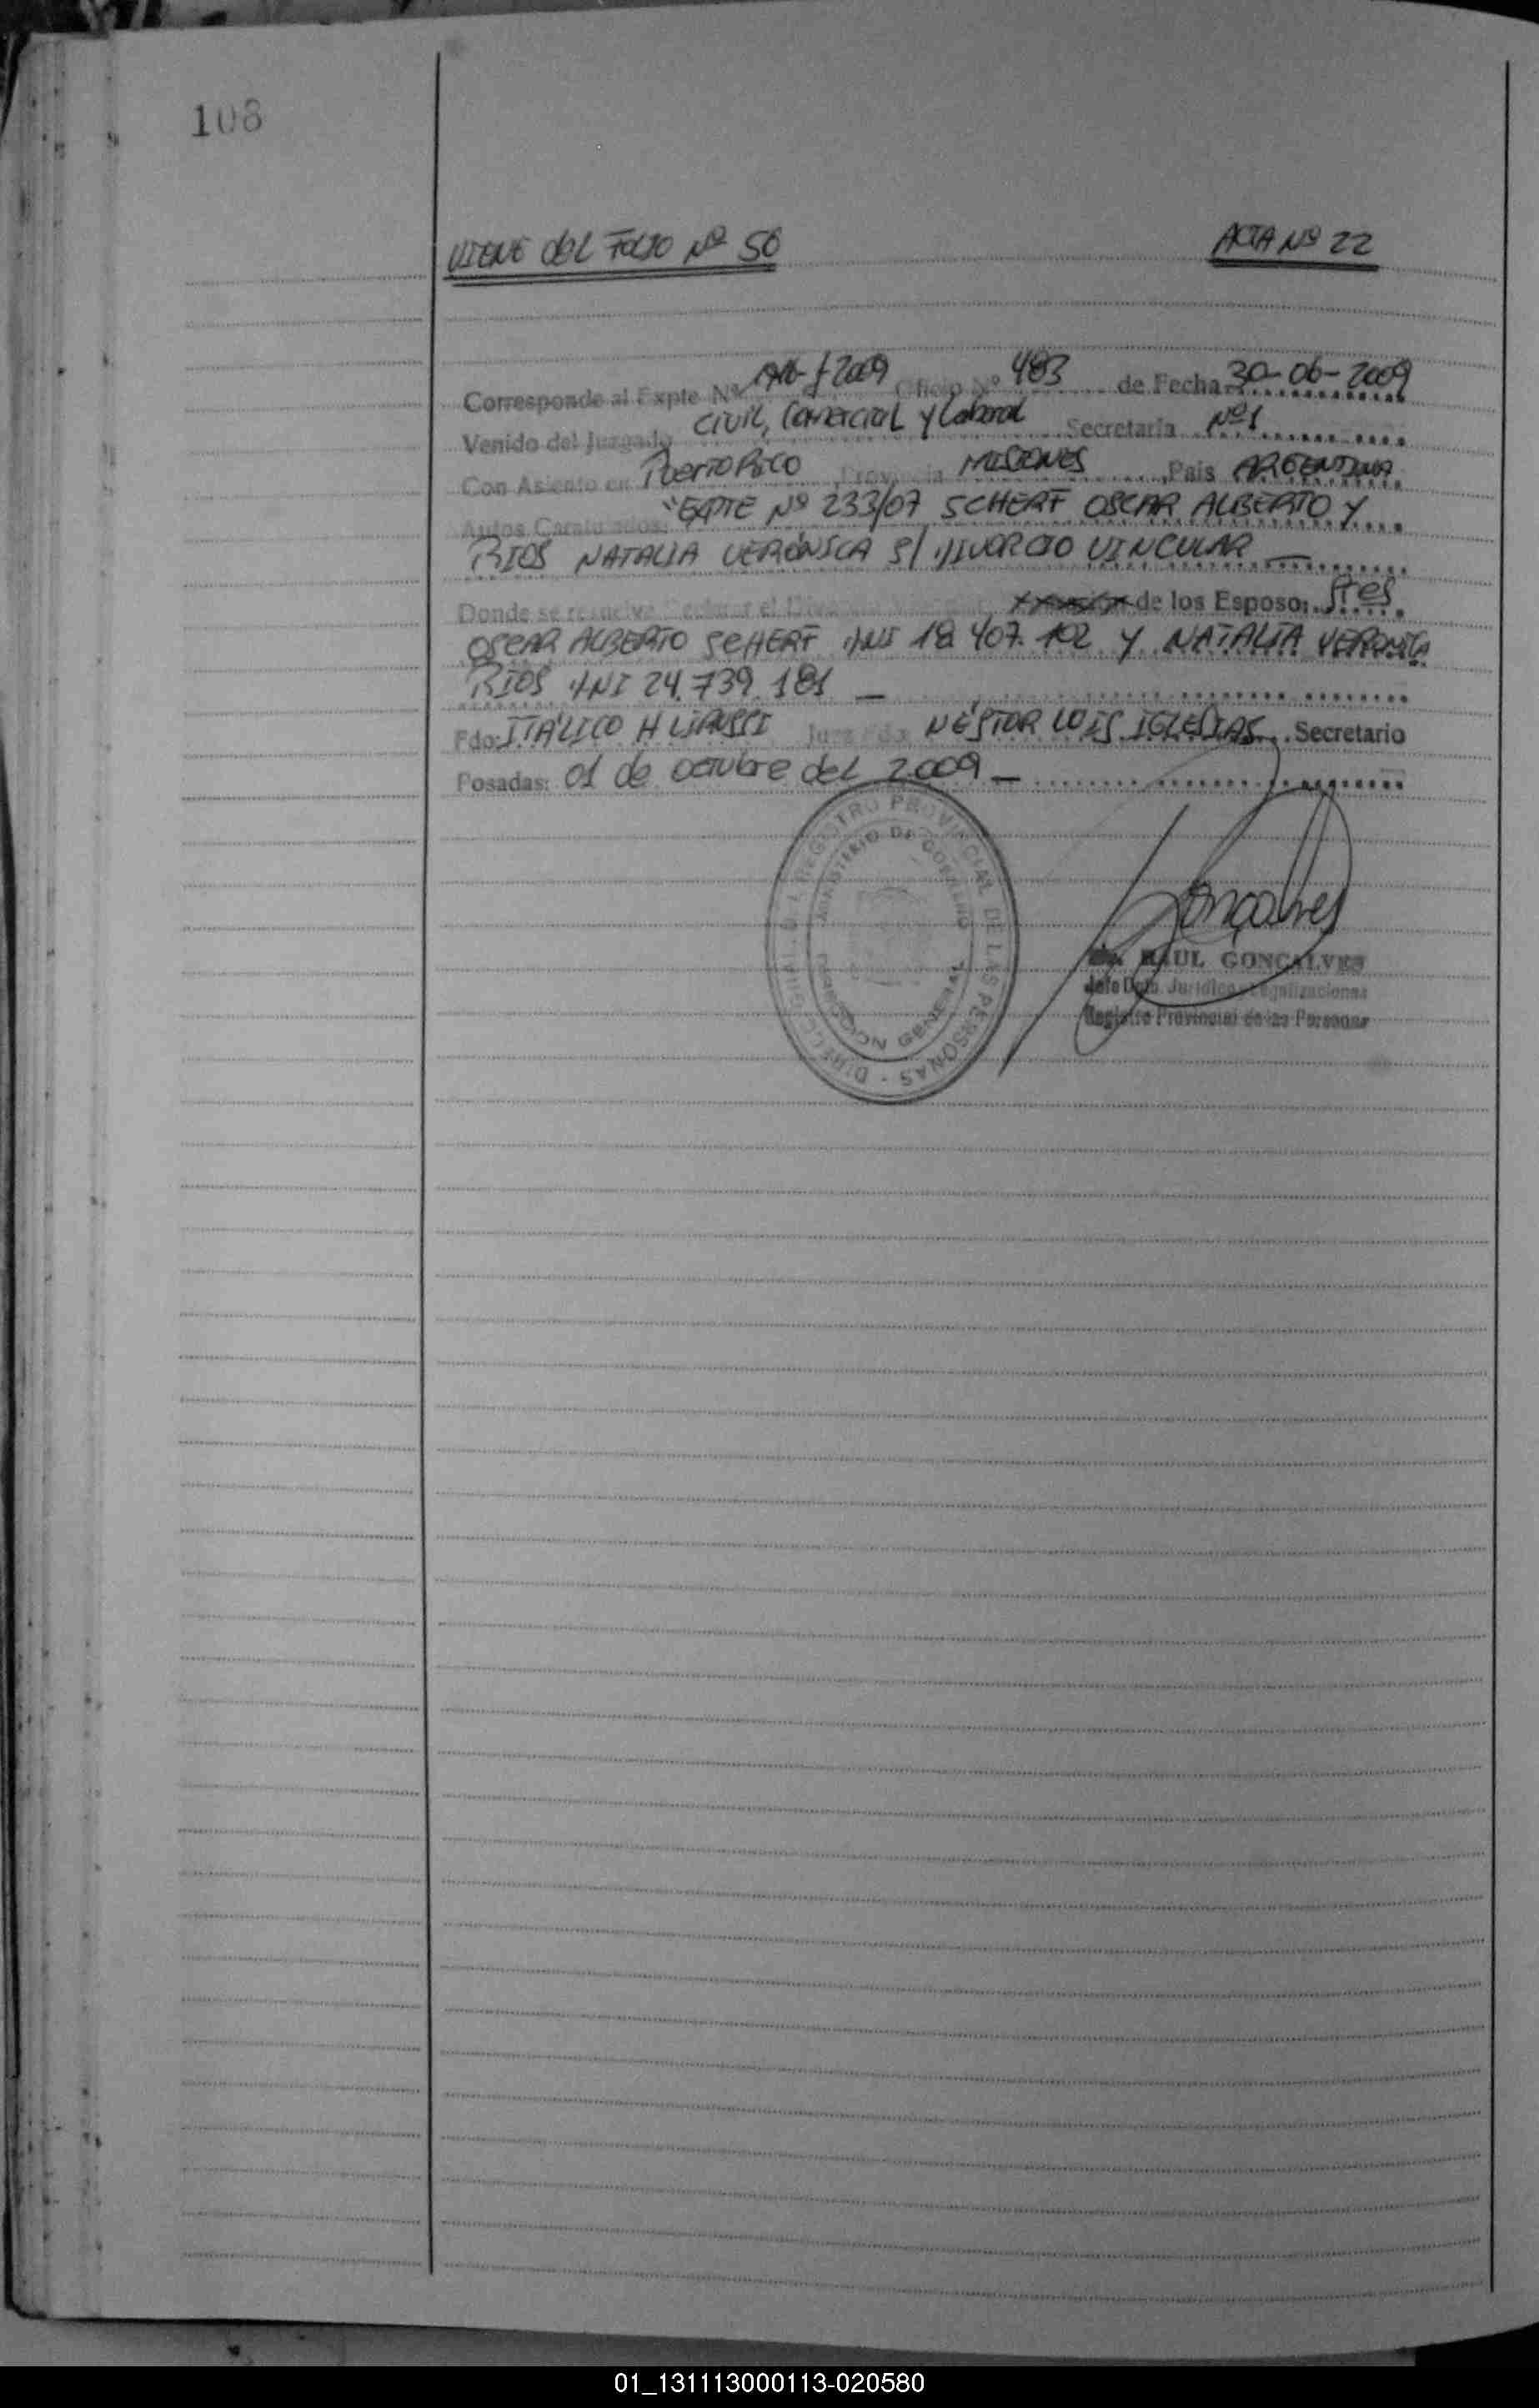 108
VIENE DEL FOLIO Nº 56
ACTA Nº 22
Corresponde al Expte Nº 2009 Oficio Nº 483 de Fecha 30-06-2009
Venido del Juzgado Civil, Comercial y Laboral Secretaria Nº1
Con Asiento en Puerto Rico Provincia MISIONES Pais ARGENTINA
Autos Caratulados: "EXPTE Nº 233/07 SCHERF OSCAR ALBERTO Y
RIOS NATALIA VERÓNICA S/ DIVORCIO VINCULAR
Donde se resuelve Declarar el Divorcio Vincular de los Esposo: Sres
OSCAR ALBERTO SCHERF DNI 18.407.102 Y NATALIA VERONICA
RIOS DNI 24.739.181 —
Fdo: ITÁLICO H Juzgado NÉSTOR LUIS IGLESIAS Secretario
Posadas: 01 de octubre del 2009 —
REGISTRO PROVINCIAL DE LAS PERSONAS - DIRECC.
MINISTERIO DE GOBIERNO
DIRECCION GENERAL
Gonçalves
RAUL GONÇALVES
Jefe Dpto. Juridico Legalizaciones
Registro Provincial de las Personas
01_131113000113-020580